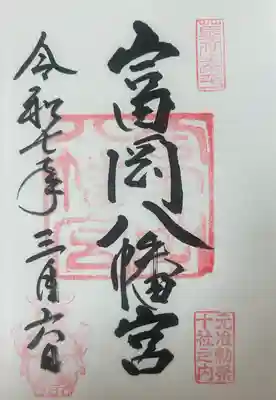 富岡八幡宮
令和七年三月六日
元准勅祭
十社之内